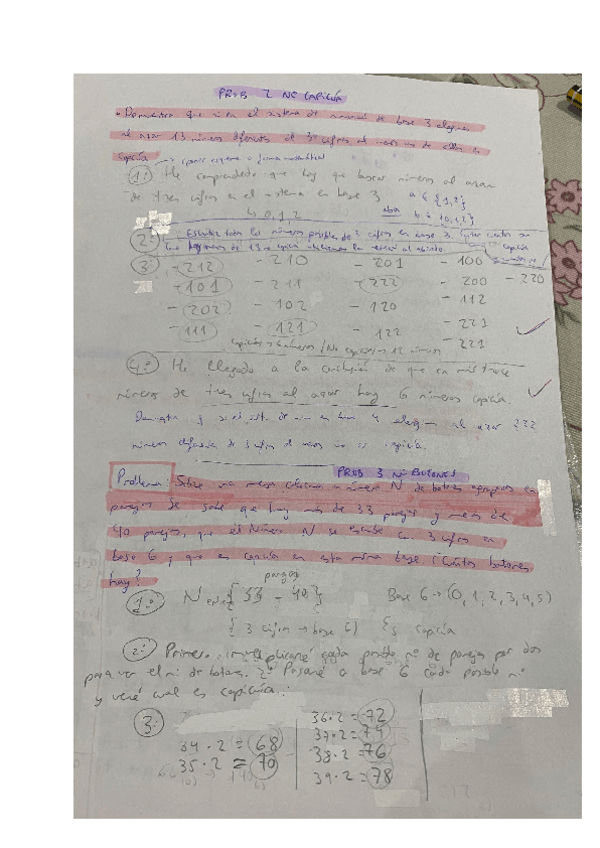 PROB 2 Nº CAPICÚA
• Demuestra que si en el sistema de base 3
al azar 13 números diferentes de 3 cifras al menos uno de ellos es
capicúa
1º: He comprendido que hay que buscar números al azar
de tres cifras en el sistema en base 3 a ∈ {1,2}
↳ 0,1,2 aba b ∈ {0,1,2}
2º: Escribir todos los números posibles de 3 cifras en base 3. capicúa
3º - 212 - 210 - 201 - 100 - 220
- 101 - 211 - 222 - 200
- 202 - 102 - 120 - 112
- 111 - 121 - 122 - 221
- 221
capicúas → 6 números / No capicúas → 12 números
4º: He llegado a la conclusión de que en mis trece
números de tres cifras al azar hay 6 números capicúa.
en base 4 al azar 222
números de 3 cifras al menos uno es capicúa.
PROB 3 Nº BOTONES
Problema: Sobre una mesa un número N de botones agrupados en
parejas. Se sabe que hay más de 33 parejas y menos de
40 parejas, que el número N se escribe con 3 cifras en
base 6 y que es capicúa en esta misma base ¿Cuántos botones
hay?
parejas
1º: N entre {33 - 40} Base 6 → (0, 1, 2, 3, 4, 5)
{3 cifras → base 6} capicúa
2º: Primero, multiplicaré cada posible nº de parejas por dos
para ver el nº de botones. 2º Pasaré a base 6 cada posible nº
y veré cual es capicúa.
3º:
34 · 2 = 68
35 · 2 = 70
36 · 2 = 72
37 · 2 = 74
38 · 2 = 76
39 · 2 = 78